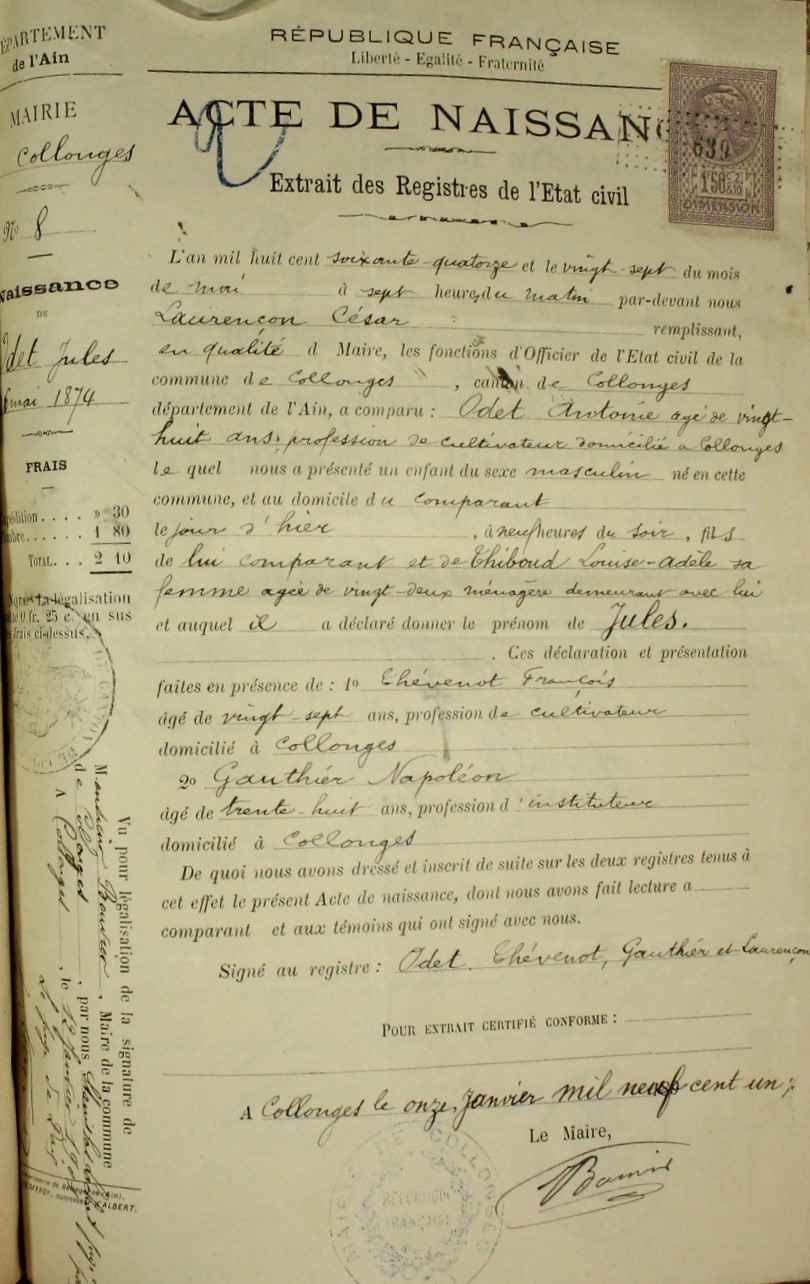 DÉPARTEMENT
de l'Ain
MAIRIE
Collonges
No 8
Naissance
DE
Odet Jules
mai 1874
FRAIS
30
1 80
TOTAL... 2 10
légalisation
0 fr. 25 c. en sus
frais ci-dessus.
RÉPUBLIQUE FRANÇAISE
Liberté - Egalité - Fraternité
ACTE DE NAISSANC
639
1F50
DIMENSION
Extrait des Registres de l'Etat civil
L'an mil huit cent soixante quatorze et le vingt sept du mois
de mai à sept heures du matin par-devant nous
Laurençon César remplissant,
en qualité d Maire, les fonctions d'Officier de l'Etat civil de la
commune de Collonges, canton de Collonges
département de l'Ain, a comparu : Odet Antoine agé de vingt-
huit ans, profession de cultivateur domicilié a Collonges
le quel nous a présenté un enfant du sexe masculin né en cette
commune, et au domicile du comparant
le jour d'hier, à neuf heures du soir, fils
de lui comparant et de Thiboud Louise-Adèle sa
femme agée de vingt-deux ménagère demeurant avec lui
et auquel il a déclaré donner le prénom de Jules.
. Ces déclaration et présentation
faites en présence de : 1o Thévenot François
âgé de vingt-sept ans, profession de cultivateur
domicilié à Collonges
2o Gauthier Napoléon
âgé de trente-huit ans, profession d'instituteur
domicilié à Collonges
De quoi nous avons dressé et inscrit de suite sur les deux registres tenus à
cet effet le présent Acte de naissance, dont nous avons fait lecture a
comparant et aux témoins qui ont signé avec nous.
Signé au registre : Odet. Thévenot, Gauthier et Laurençon
POUR EXTRAIT CERTIFIÉ CONFORME :
A Collonges le onze, janvier mil neuf cent un,
Le Maire,
Vu pour légalisation de la signature de
Monsieur, Maire de la commune
de Collonges, par nous
A Collonges, le 12 janvier